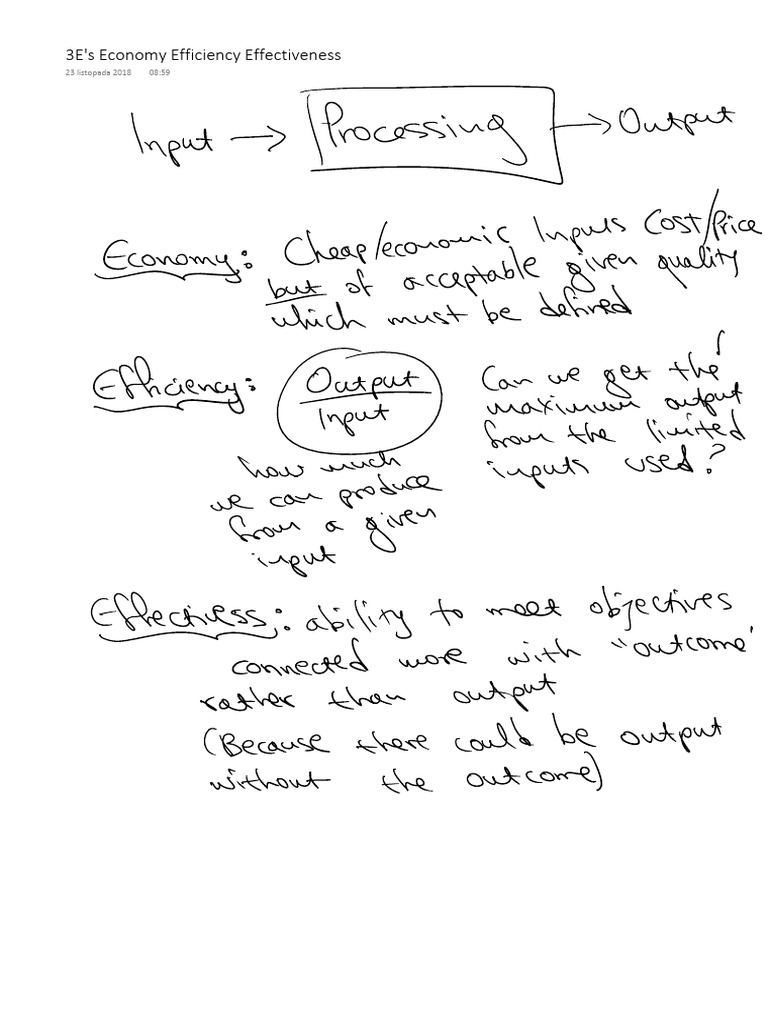 3E's Economy Efficiency Effectiveness
23 listopada 2018 08:59
Input → Processing → Output
Economy: Cheap/economic Inputs Cost/Price
but of acceptable given quality
which must be defined
Efficiency: Output
Input
how much
we can produce
from a given
input
Can we get the
maximum output
from the limited
inputs used?
Effectivess: ability to meet objectives
connected more with "outcome"
rather than output
(Because there could be output
without the outcome)